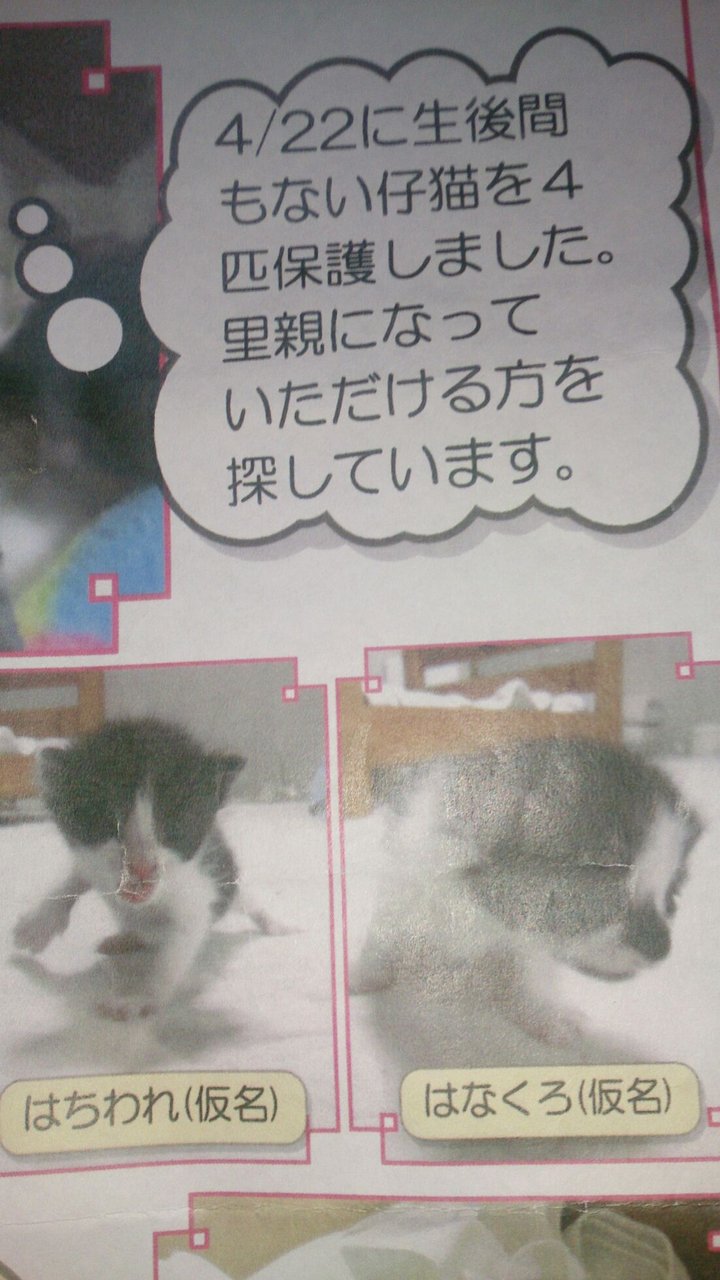 4/22に生後間
もない仔猫を4
匹保護しました。
里親になって
いただける方を
探しています。
はちわれ(仮名)
はなくろ(仮名)